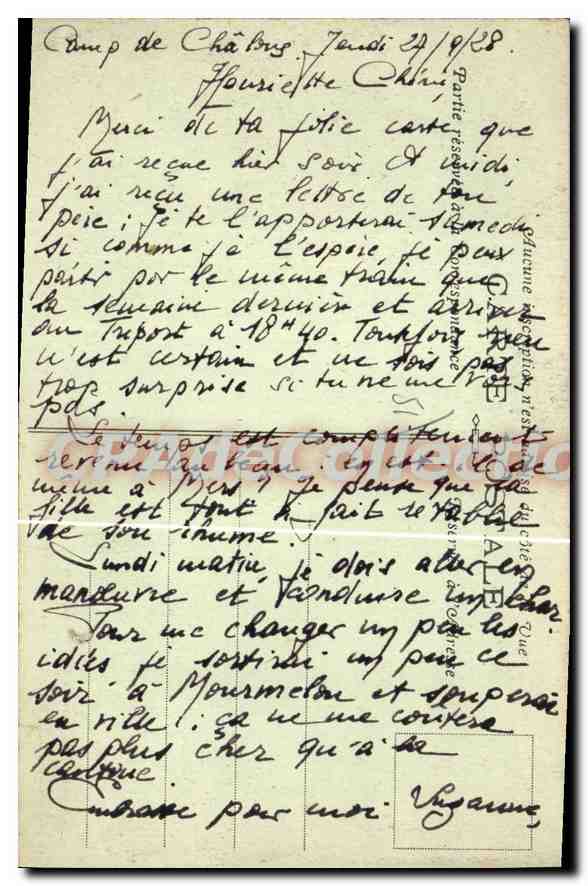 Camp de Châlons. Jeudi 27/9/28.
Henriette Chérie
Merci de ta jolie carte que
j'ai reçue hier soir et midi,
j'ai reçu une lettre de ton
père ; je te l'apporterai samedi
si comme je l'espère, je peux
partir par le même train que
la semaine dernière et arriver
au Tréport à 18H40. Toutefois rien
n'est certain et ne sois pas
trop surprise si tu ne me vois
pas.
Le temps est complètement
revenu au beau : en est-il de
même à Mers ? Je pense que ta
fille est tout à fait rétablie
de son rhume.
Lundi matin, je dois aller en
manœuvre et conduire un char.
Pour me changer un peu les
idées je sortirai un peu ce
soir à Mourmelon et souperai
en ville : ça ne me coûtera
pas plus cher qu'à la
cantine
Embrasse pour moi Suzanne,
Partie réservée à la Correspondance
CARTE POSTALE
Aucune inscription n'est admise du côté de la Vue
réservée à l'Adresse
CPAdeCollection